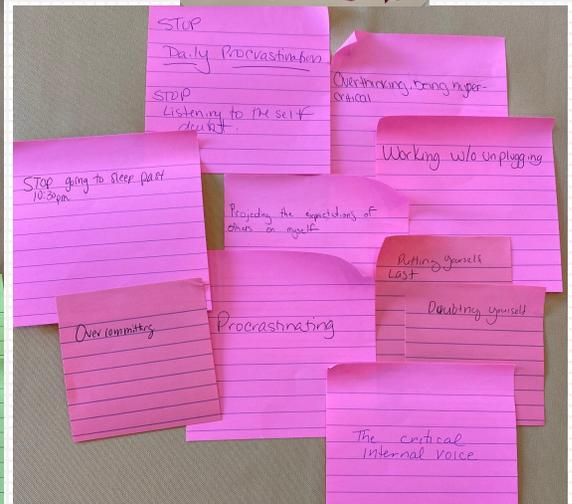 STOP
Daily Procrastination
STOP
Listening to the self
doubt.
Overthinking, being hyper-
critical
Working w/o unplugging
STOP going to sleep past
10:30pm
Projecting the expectations of
others on myself
Putting yourself
Last
Doubting yourself
Overcommitting
Procrastinating
The critical
internal voice